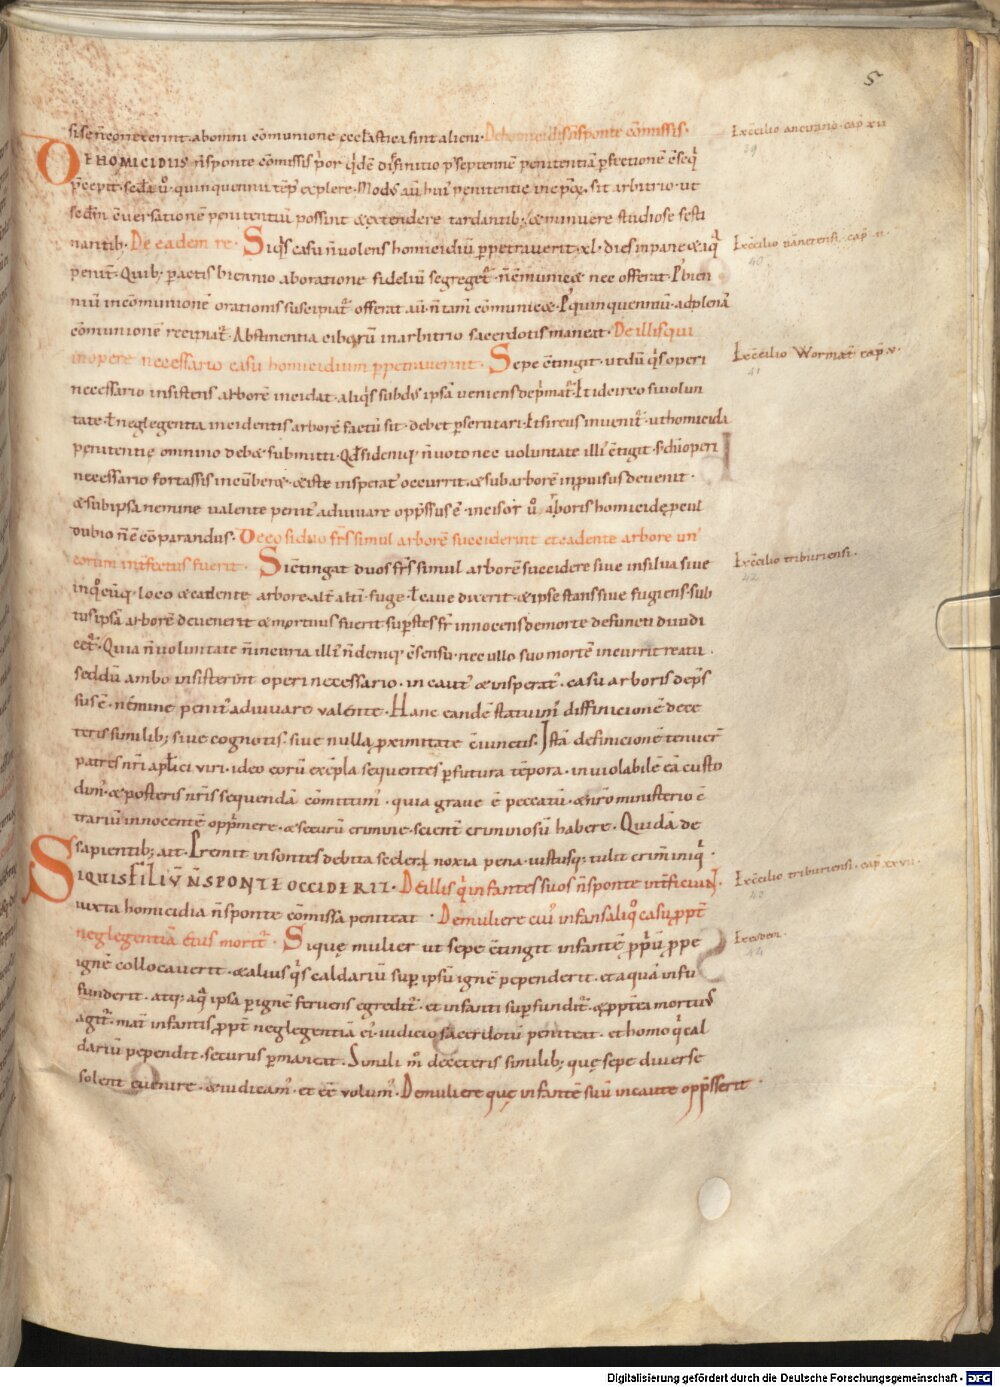 5
si se n̄ correxerint. ab omni cōmunione ęcclesiastica sint alieni. De homicidiis n̄ sponte cōmissis.
Ex c̄cilio ancirano. cap̄ xxii
39
DE HOMICIDIIS n̄ sponte cōmissis prior q̇dē diffinitio p̱ septennē penitentiā ꝑfectionē c̄seq̇
p̄cepit. sec̄da ū. quinquennii tēp̱ explere. Modꝰ aū huiꝰ penitentię in ep̄i sit arbitrio. ut
sc̄dm c̄versationē penitentiū possint & extendere tardantibꝫ & minuere studiose festi
nantibꝫ. De eadem re. Siq̇s casu n̄ volens homicidiū ꝑpetraverit. xl. dies in pane & aq̄
Ex c̄cilio nānetensi. cap̄.
40
peniteat. Quibꝫ ꝑactis biennio ab oratione fideliū segregetur. n̄ cōmunicet nec offerat. Post bien
niū in cōmunionē orationis suscipiatur. offerat aū. n̄ tam̄ cōmunicet. Post quinquenniū. ad plenā
cōmunionē recipiat̄. Abstinentia ciborū in arbitrio sacerdotis maneat. De illis qui
in opere necessario casu homicidium ꝑpetraverint. Sepe c̄tingit. ut dū q̇s operi
Ex c̄cilio Wormat̄. cap̄.
41
necessario insistens arborē incidat. aliq̇s subtus ipsā veniens dep̄matur. Et ideirco si volun
tate ł neglegentia incidentis arborē factū sit. debet ꝑscrutari. Et si reus invenitur. ut homicida
penitentię omnino debet submitti. Qđ si deniq̇. n̄ voto nec voluntate illiꝰ c̄tigit. s; dū operi
necessario fortassis incūberet. & iste insperatꝰ occurrit. & sub arborē inp̄visus devenit.
& sub ipsa nemine valente penitꝰ adiuvare opp̄ssus ē. incisor ū arboris homicidę procul
dubio n̄ ē cōparandus. De eo si duo fr̄s simul arborē succiderint et cadente arbore unꝰ
eorum int̄fectus fuerit. Si c̄tingat duos fr̄s simul arborē succidere sive in silva sive
Ex c̄cilio triburiensi.
42
in q̊cūq̇. loco & cadente arbore. alt̄ alt̄i. fuge. ł cave dixerit. & ipse stans sive fugiens sub
tus ipsā arborē devenerit & mortuus fuerit. sup̱stes fr̄ innocens de morte defuncti diiudi
cetur. Quia n̄ voluntate n̄ incuria illiꝰ n̄ deniq̇ c̄sensu. nec ullo suo mortē incurrit reatu.
sed dū ambo insisterent operi necessario. incautꝰ & insperatꝰ. casu arboris dep̄s
sus ē. nēmine penitꝰ adiuvare valente. Hanc eandē statuimꝰ diffinicionē de ce
teris similibꝫ sive cognotis. sive nulla ꝓximitate c̄iunctis. Istā definicionē tenuer̄
patres nr̄i apłici viri. ideo eorū exēpla sequentes ꝑ futura tēpora. inviolabilē eā custo
dimꝰ. & posteris nr̄is sequendā cōmittimꝰ. quia grave ē peccatū. & nr̄o ministerio c̄
trariū innocentē opp̄mere. & securū crimine. scient̄ criminosū habere. Quidā de
sapientibꝫ ait. Premit insontes debita sceleri noxia pena. iustusq; tulit crimen iniq̇.
SI QUIS FILIŪ N̄ SPONTE OCCIDERIT. De illis q̇ infantes suos n̄ sponte int̄ficiunt.
Ex c̄cilio triburiensi. cap̄ xxxvii.
43
iuxta homicidia n̄ sponte cōmissa peniteat. De muliere cuiꝰ infans aliq̊ casu ꝓpt̄
neglegentiā eius moritur. Siquę mulier ut sepe c̄tingit infantē ꝓpriū ꝓpe
Ex eodem.
44
ignē collocaverit. & alius q̇s caldariū sup̱ ipsū ignē pependerit. et aquā infu
funderit. atq; aq̄ ipsa p̱ ignē fervens egreditur. et infanti sup̱funditur. & ꝓpterea mortuꝰ
agitur. mat̄ infantis ꝓpt̄ neglegentiā eiꝰ iudicio sacerdotū peniteat. et homo q̇ cal
dariū pependit. securus ꝑmaneat. Simili m̊ de ceteris similibꝫ. quę sepe diverse
solent evenire. & iudicamꝰ. et ēē volumꝰ. De muliere quę infantē suū incaute opp̄sserit.
Digitalisierung gefördert durch die Deutsche Forschungsgemeinschaft - DFG